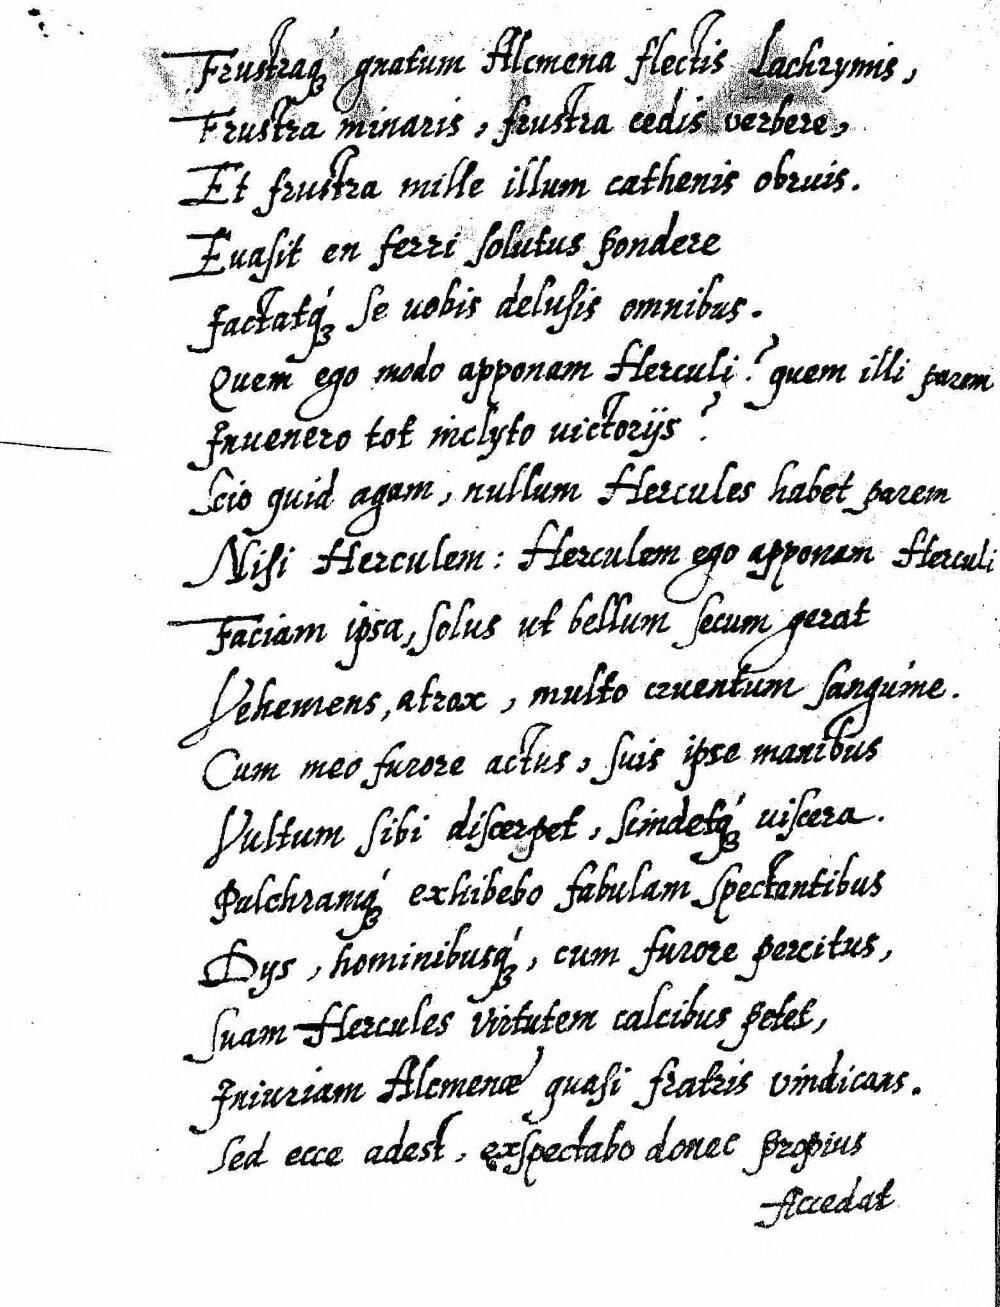 Frustraq́ꝫ gnatum Alcmena flectis lachrymis,
Frustra minaris, frustra cedis verbere,
Et frustra mille illum cathenis obruis.
Euasit en ferri solutus pondere
Iactatq́ꝫ se uobis delusis omnibus.
Quem ego modo apponam Herculi? quem illi parem
Inuenero tot inclyto uictorijs?
Scio quid agam, nullum Hercules habet parem
Nisi Herculem: Herculem ego apponam Herculi
Faciam ipsa, solus ut bellum secum gerat
Vehemens, atrox, multo cruentum sanguine.
Cum meo furore actus, suis ipse manibus
Vultum sibi discerpet, scindetq́ꝫ uiscera.
Palchramq́ꝫ exhibebo fabulam spectantibus
Dys, hominibusq́ꝫ, cum furore percitus,
Suam Hercules virtutem calcibus petet,
Iniuriam Alcmenæ quasi fratris vindicans.
Sed ecce adest, exspectabo donec propius
Accedat